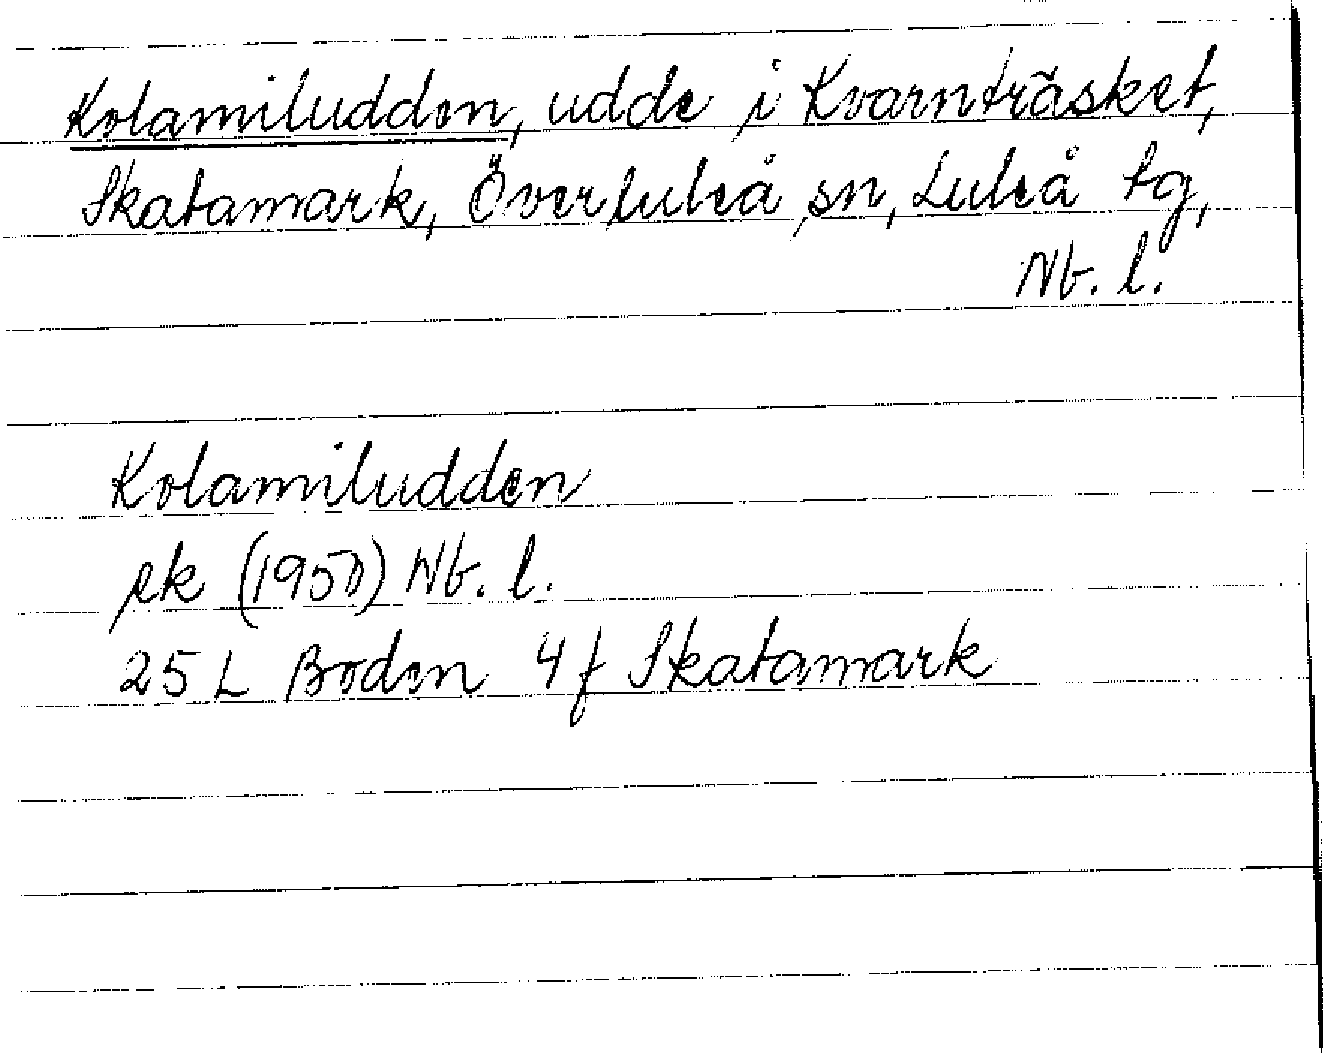 Kolamiludden, udde i Kvarnträsket,
Skatamark, Överluleå sn, Luleå tg,
Nb. l.
Kolamiludden
ek (1950) Nb. l.
25 L Boden 4 f Skatamark